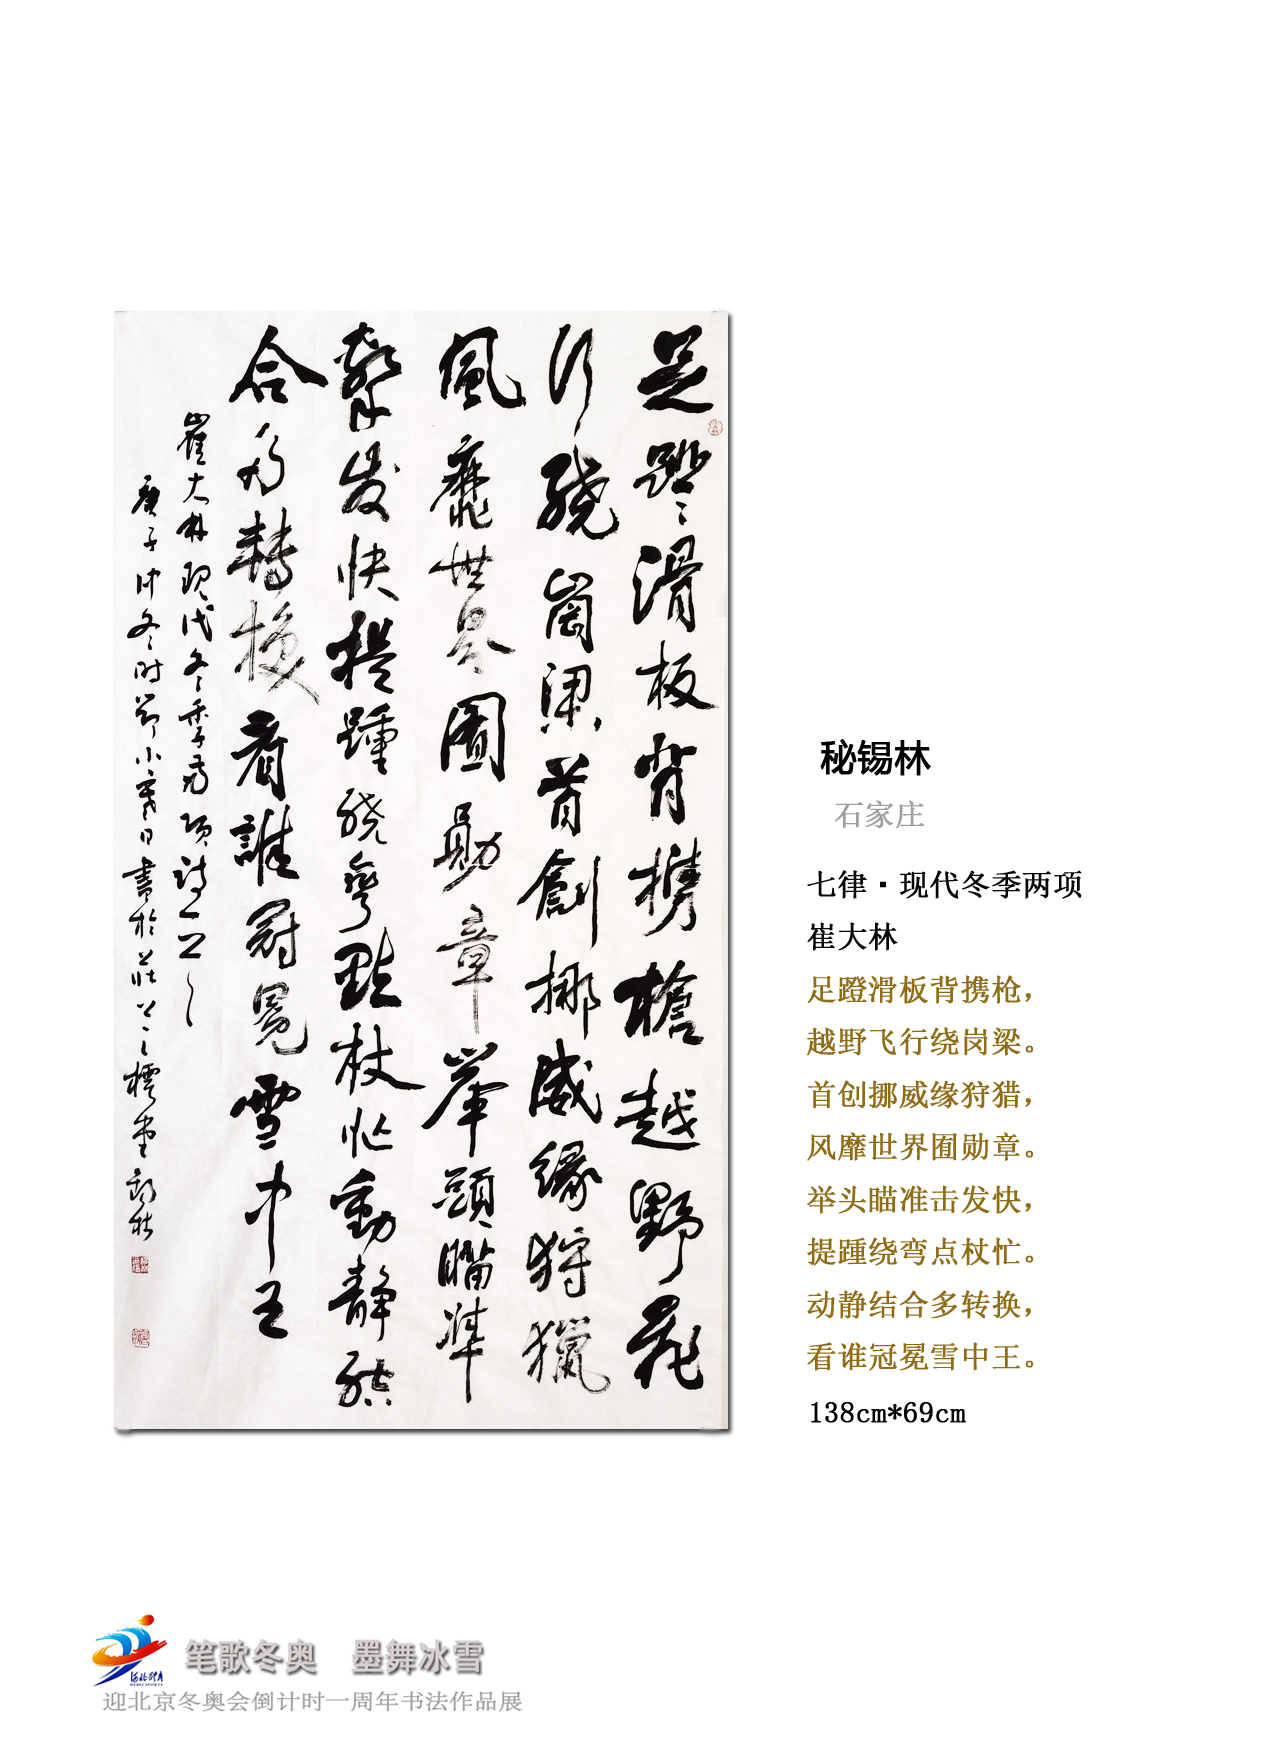 足蹬滑板背携槍越野飛
行绕崗梁首創挪威緣狩獵
風靡世界囿勛章舉頭瞄準
擊发快提踵绕彎點杖忙動静結
合多轉换看誰冠冕雪中王
崔大林现代冬季两项诗一首
庚子仲冬时节小寒日書於莊
秘锡林
石家庄
七律·现代冬季两项
崔大林
足蹬滑板背携枪，
越野飞行绕岗梁。
首创挪威缘狩猎，
风靡世界囿勋章。
举头瞄准击发快，
提踵绕弯点杖忙。
动静结合多转换，
看谁冠冕雪中王。
138cm*69cm
笔歌冬奥 墨舞冰雪
河北体育
HEBEI SPORTS
迎北京冬奥会倒计时一周年书法作品展